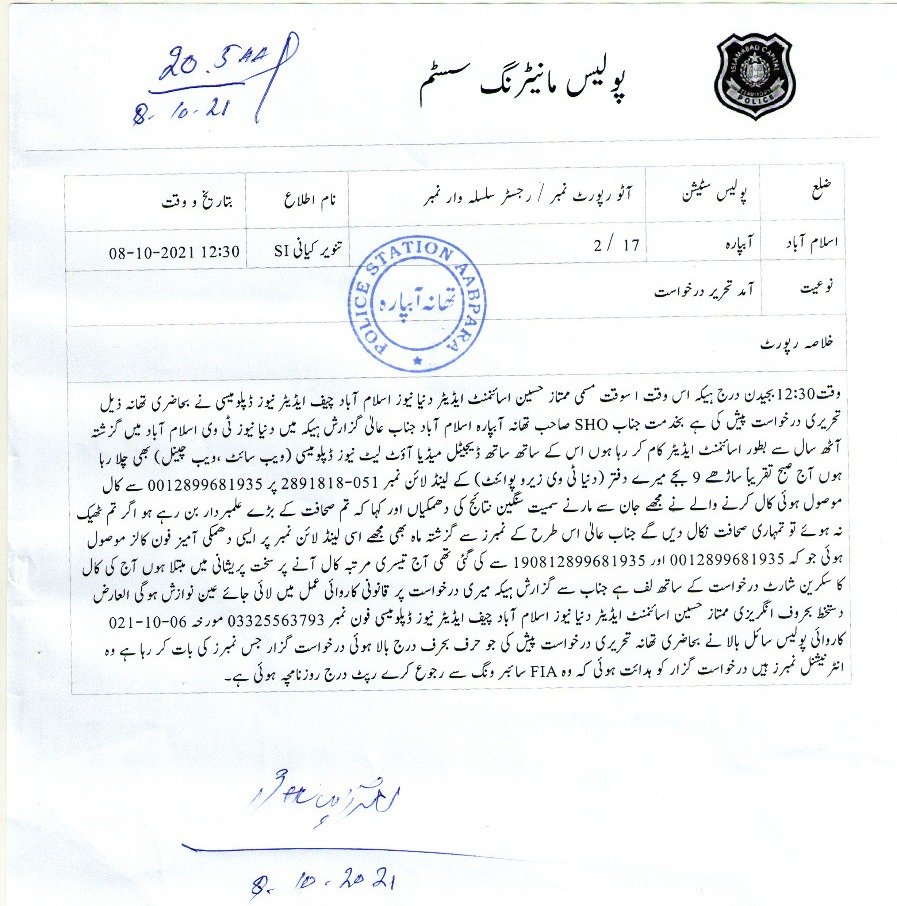 20.5
8.10.21
پولیس مانیٹرنگ سسٹم
ISLAMABAD CAPITAL TERRITORY POLICE
ضلع پولیس سٹیشن آٹو رپورٹ نمبر / رجسٹر سلسلہ وار نمبر نام اطلاع بتاریخ و وقت
اسلام آباد آبپارہ 17 / 2 تنویر کیانی SI 08-10-2021 12:30
نوعیت آمد تحریر درخواست
POLICE STATION AABPARA
تھانہ آبپارہ
خلاصہ رپورٹ
وقت12:30 بجیدن درج ہیکہ اس وقت ا سوقت مسمی ممتاز حسین اسائنمنٹ ایڈیٹر دنیا نیوز اسلام آباد چیف ایڈیٹر نیوز ڈپلومیسی نے بحاضری تھانہ ذیل
تحریری درخواست پیش کی ہے بخدمت جناب SHO صاحب تھانہ آبپارہ اسلام آباد جناب عالی گزارش ہیکہ میں دنیا نیوز ٹی وی اسلام آباد میں گزشتہ
آٹھ سال سے بطور اسائنمنٹ ایڈیٹر کام کر رہا ہوں اس کے ساتھ ساتھ ڈیجیٹل میڈیا آؤٹ لیٹ نیوز ڈپلومیسی (ویب سائٹ ،ویب چینل) بھی چلا رہا
ہوں آج صبح تقریباً ساڑھے 9 بجے میرے دفتر (دنیا ٹی وی زیرو پوائنٹ) کے لینڈ لائن نمبر 051-2891818 پر 0012899681935 سے کال
موصول ہوئی کال کرنے والے نے مجھے جان سے مارنے سمیت سنگین نتائج کی دھمکیاں اور کہا کہ تم صحافت کے بڑے علمبردار بن رہے ہو اگر تم ٹھیک
نہ ہوئے تو تمہاری صحافت نکال دیں گے جناب عالیٰ اس طرح کے نمبرز سے گزشتہ ماہ بھی مجھے اسی لینڈ لائن نمبر پر ایسی دھمکی آمیز فون کالز موصول
ہوئی جو کہ 0012899681935 اور 190812899681935 سے کی گئی تھی آج تیسری مرتبہ کال آنے پر سخت پریشانی میں مبتلا ہوں آج کی کال
کا سکرین شارٹ درخواست کے ساتھ لف ہے جناب سے گزارش ہیکہ میری درخواست پر قانونی کاروائی عمل میں لائی جائے عین نوازش ہوگی العارض
دستخط بحروف انگریزی ممتاز حسین اسائنمنٹ ایڈیٹر دنیا نیوز اسلام آباد چیف ایڈیٹر نیوز ڈپلومیسی فون نمبر 03325563793 مورخہ 06-10-021
کاروائی پولیس سائل بالا نے بحاضری تھانہ تحریری درخواست پیش کی جو حرف بحرف درج بالا ہوئی درخواست گزار جس نمبرز کی بات کر رہا ہے وہ
انٹرنیشنل نمبرز ہیں درخواست گزار کو ہدائت ہوئی کہ وہ FIA سائبر ونگ سے رجوع کرے رپٹ درج روزنامچہ ہوئی ہے۔
8.10.2021